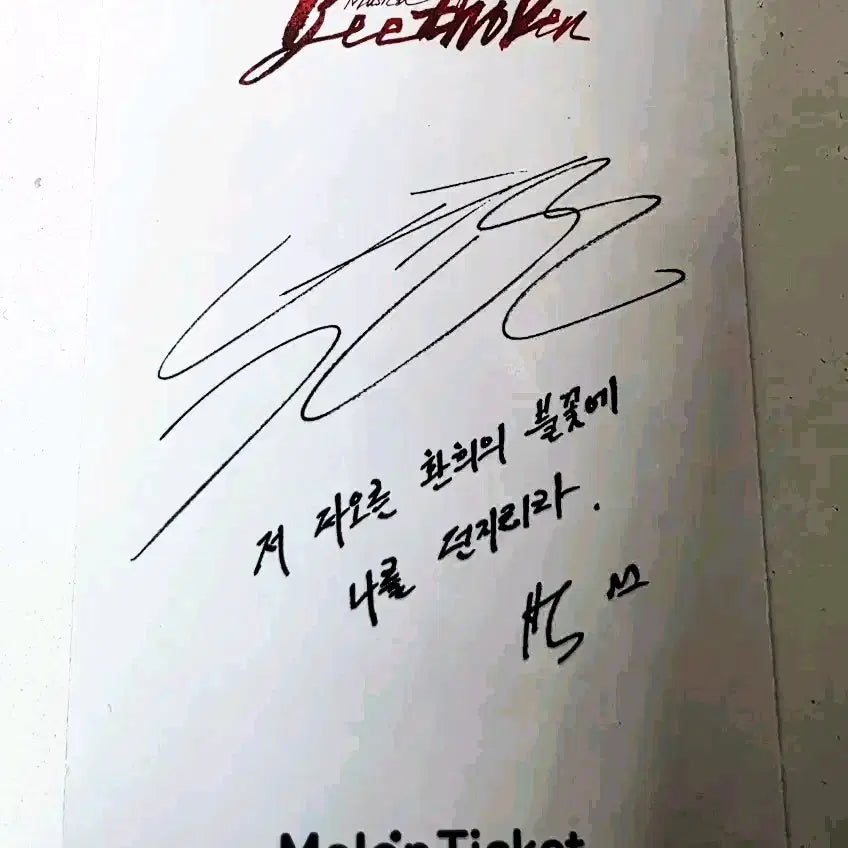 Musical
Beethoven
저 타오른 환희의 불꽃에
나를 던지리라.
Melon Ticket